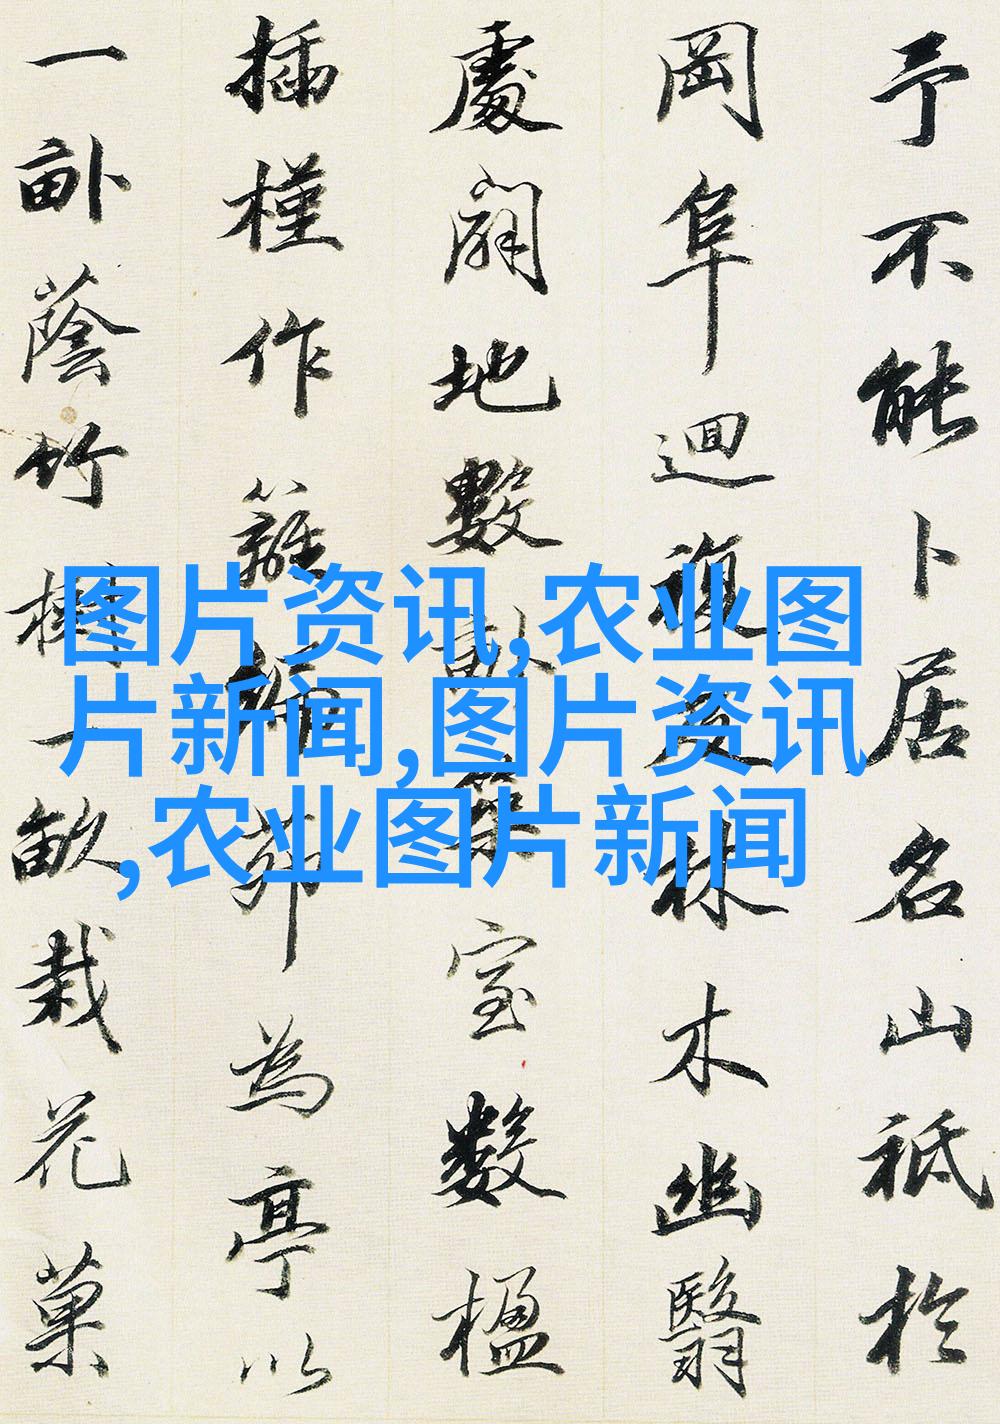 予不能卜居名山祗於
岡阜迴複及林木幽翳
處闢地數畝築室數楹
插槿作籬編茆為亭以
一畝蔭竹樹一畝栽花菓
图片资讯,农业图
片新闻,图片资讯
,农业图片新闻